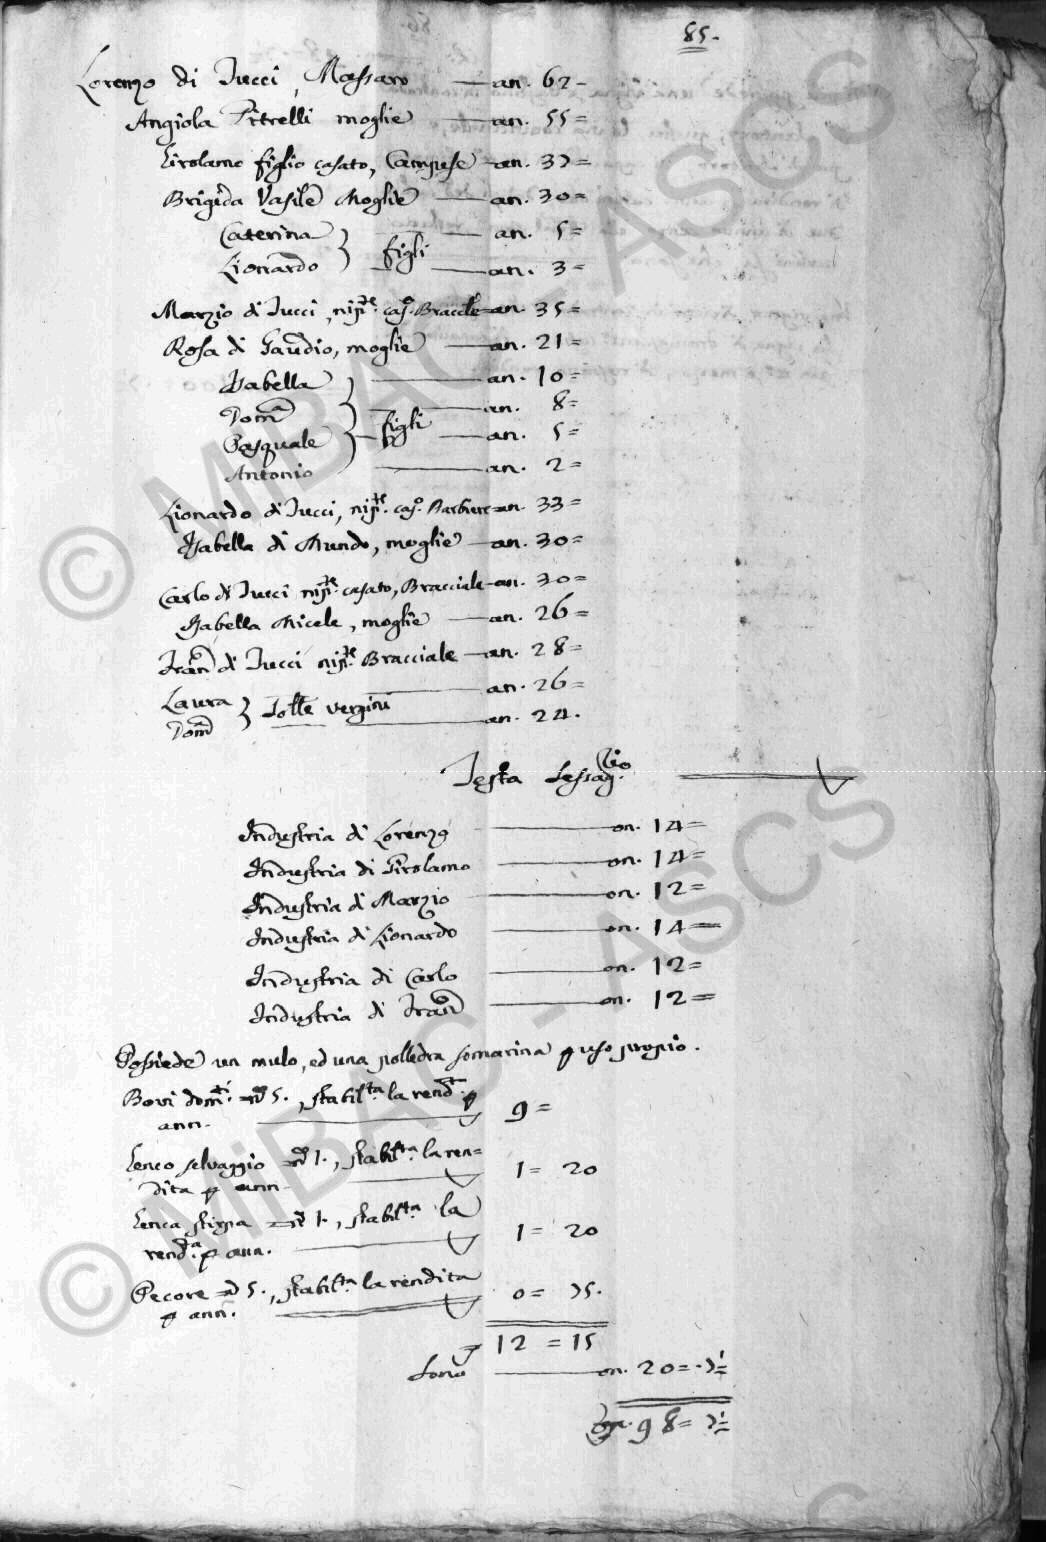 85.
Lorenzo di Iucci, Massaro — an. 62 -
Angiola Pitrelli moglie — an. 55 =
Girolamo figlio casato, Campese an. 37 =
Brigida Vasile Moglie — an. 30 =
Caterina } — an. 5 =
figli
Lionardo — an. 3 =
Marzio di Iucci, nip.te cas.o Bracc.le an. 35 =
Rosa di Gaudio, moglie — an. 21 =
Isabella } — an. 10 =
Dom.a — an. 8 =
figli
Pasquale — an. 5 =
Antonio — an. 2 =
Lionardo di Iucci, nip.te cas.o Barbiere an. 33 =
Isabella di Mundo, moglie — an. 30 =
Carlo di Iucci nip.te casato, Bracciale an. 30 =
Isabella Micele, moglie — an. 26 =
Fran.o di Iucci nip.te Bracciale — an. 28 =
Laura } — an. 26 =
Sorelle vergini
Dom.a — an. 24.
Testa
Industria di Lorenzo — on. 14 =
Industria di Girolamo — on. 14 =
Industria di Marzio — on. 12 =
Industria di Lionardo — on. 14 =
Industria di Carlo — on. 12 =
Industria di Fran.o — on. 12 =
Possiede un mulo, ed una polledra somarina p uso proprio.
Bovi dom.ti n.o 5., stabil.ta la rend.ta p
ann. — 9 =
Genco selvaggio n.o 1., stabil.ta la ren=
dita p ann — 1 = 20
Genca n.o 1., stabil.ta la
rend.ta p ann. — 1 = 20
Pecore n.o 5., stabil.ta la rendita
p ann. — 0 = 75.
12 = 15
Sono — on. 20 =
on. 98 =
© MiBAC - ASCS
© MiBAC - ASCS